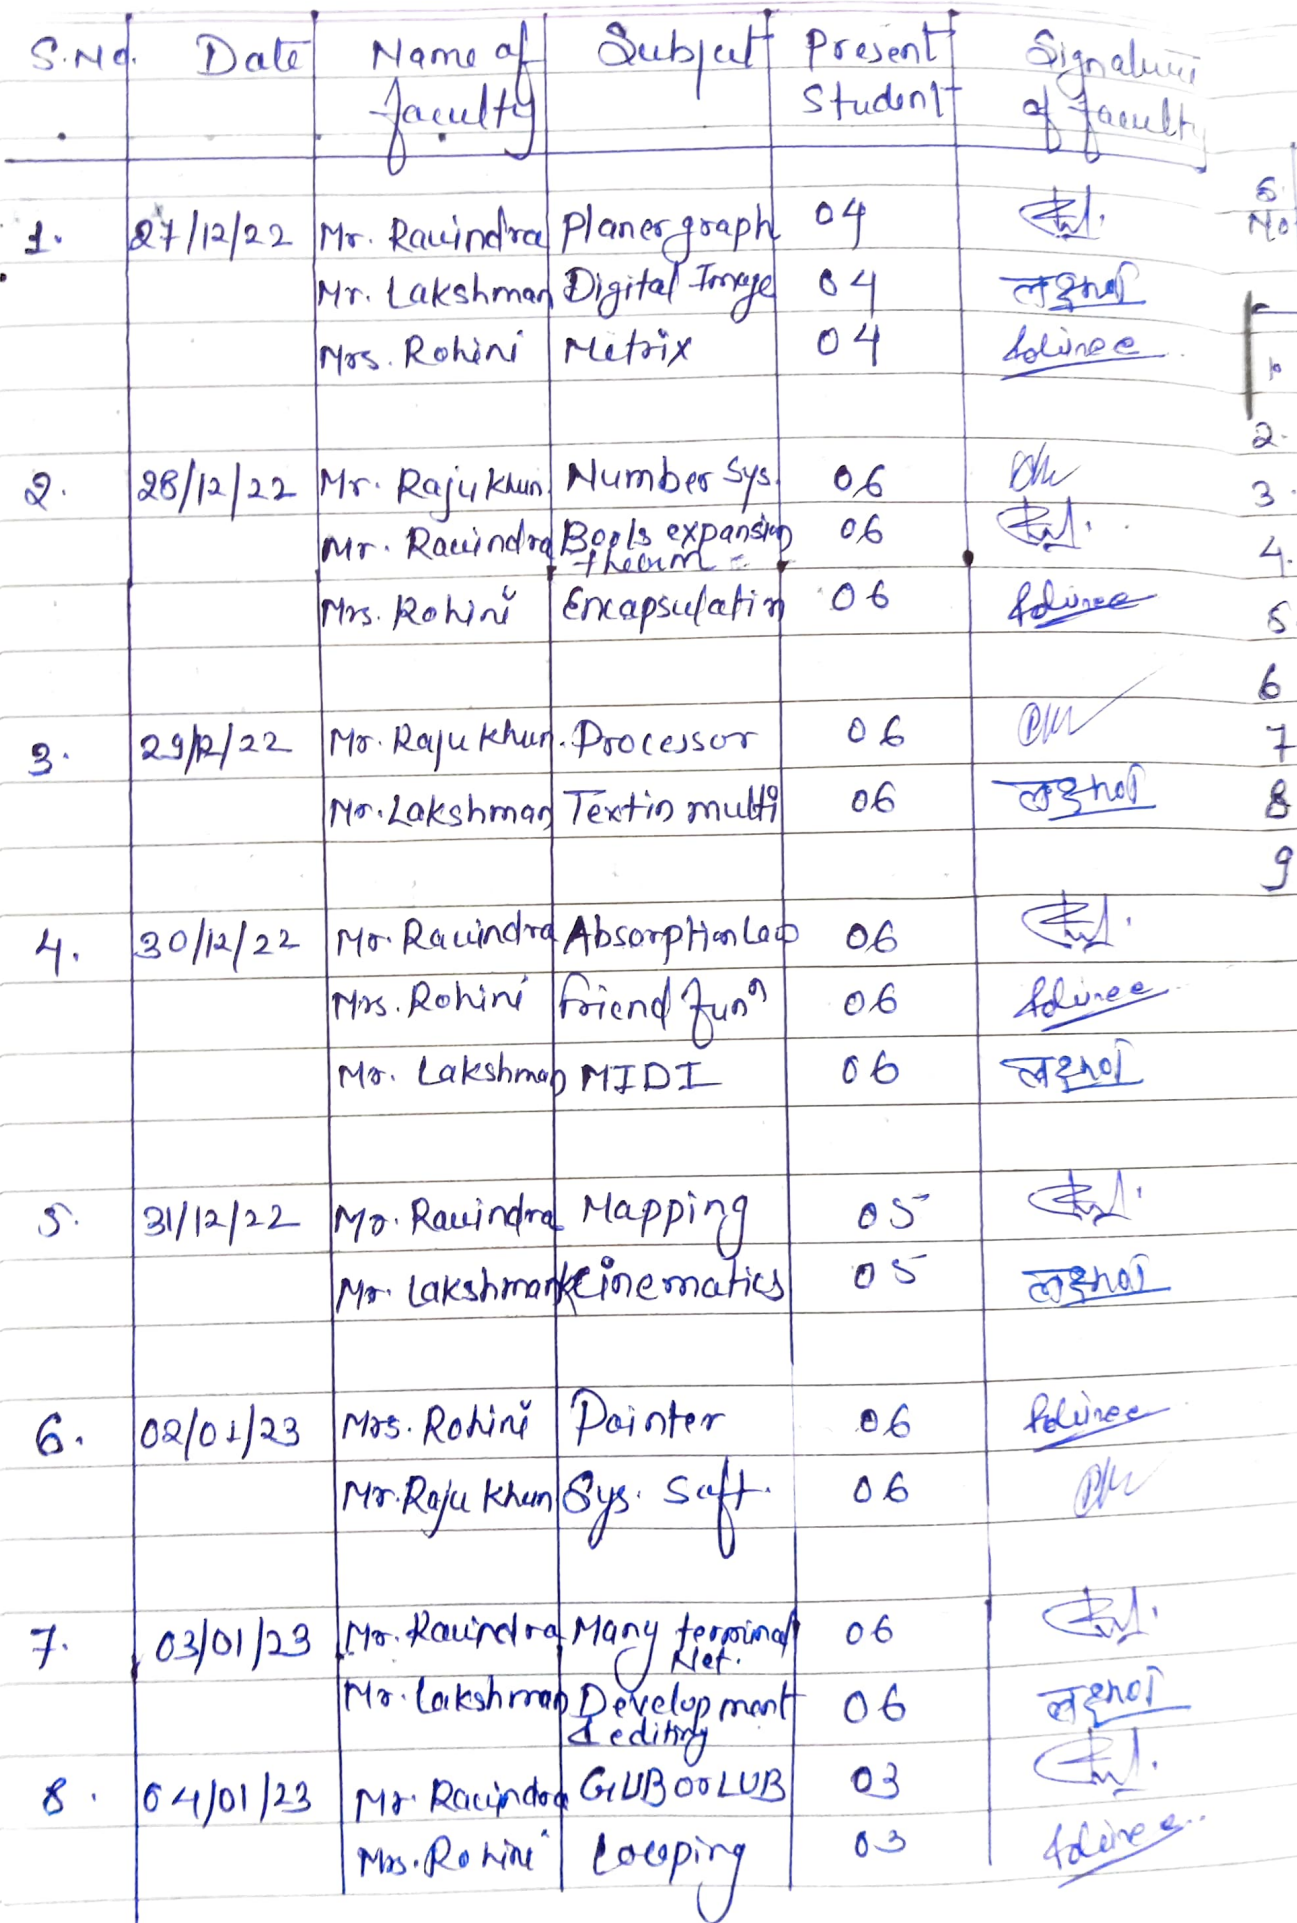 S.No. Date Name of Subject Present Signature
faculty Student of faculty
1. 27/12/22 Mr. Ravindra Planer graph 04
Mr. Lakshman Digital Image 04 लक्ष्मण
Mrs. Rohini Metrix 04
2. 28/12/22 Mr. Raju khun. Number Sys. 06
Mr. Ravindra Bools expansion 06
theorm
Mrs. Rohini Encapsulation 06
3. 29/12/22 Mr. Raju khun. Processor 06
Mr. Lakshman Text in multi 06 लक्ष्मण
4. 30/12/22 Mr. Ravindra Absorption Law 06
Mrs. Rohini friend funⁿ 06
Mr. Lakshman MIDI 06 लक्ष्मण
5. 31/12/22 Mr. Ravindra Mapping 05
Mr. Lakshman Kinematics 05 लक्ष्मण
6. 02/01/23 Mrs. Rohini Pointer 06
Mr. Raju khun Sys. Soft. 06
7. 03/01/23 Mr. Ravindra Many terminal 06
Net.
Mr. Lakshman Development 06 लक्ष्मण
& editing
8. 04/01/23 Mr. Ravindra GLUB or LUB 03
Mrs. Rohini Looping 03
S.
No
2.
3.
4.
5
6
7
8
9